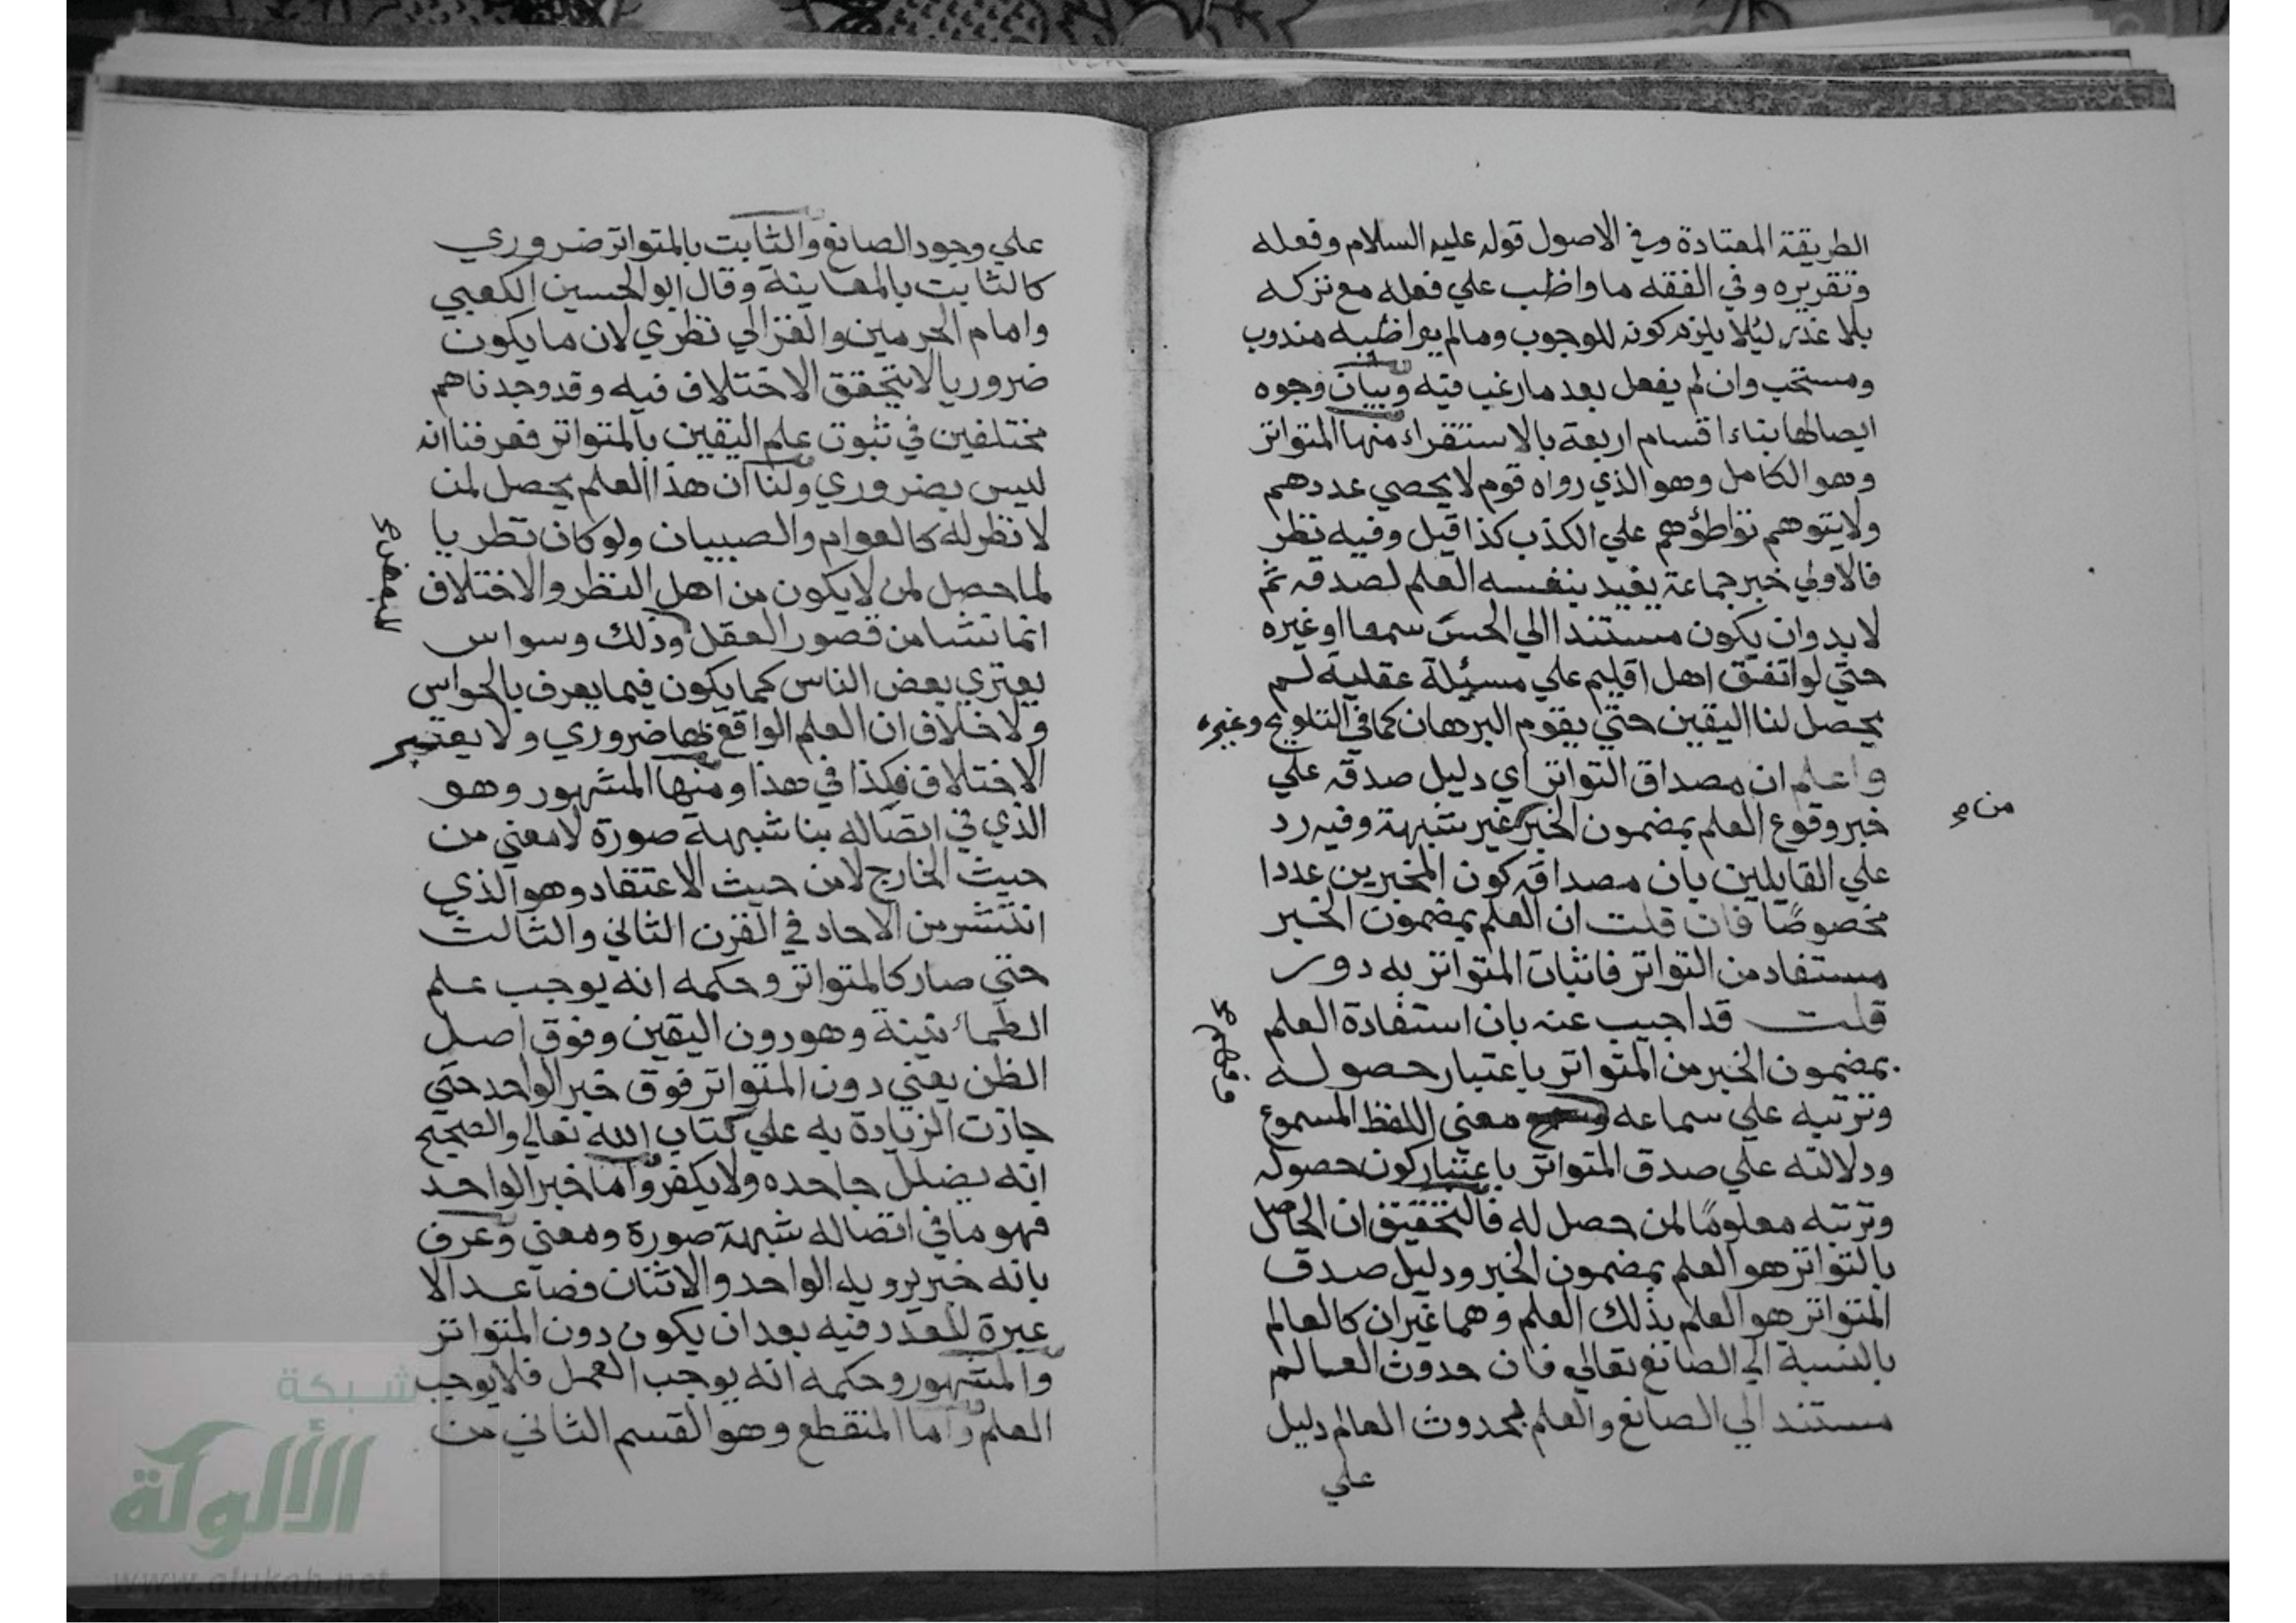 الطريقة المعتادة وفي الاصول قوله عليه السلام وفعله
وتقريره وفي الفقه ما واظب علي فعله مع تركه
بلا عذر ليلا يلزم كونه للوجوب وما لم يواظبه مندوب
ومستحب وان لم يفعل بعد ما رغب فيه وبيان وجوه
ايصالها بناء اقسام اربعة بالاستقراء منها المتواتر
وهو الكامل وهو الذي رواه قوم لا يحصي عددهم
ولا يتوهم تواطؤهم علي الكذب كذا قيل وفيه نظر
فالاولي خبر جماعة يفيد بنفسه العلم لصدقه ثم
لا بد وان يكون مستندا الي الحس سمعا او غيره
حتي لو اتفق اهل اقليم علي مسئلة عقلية لم
يحصل لنا اليقين حتي يقوم البرهان كما في التلويح وغيره
واعلم ان مصداق التواتر اي دليل صدقه علي
خبر وقوع العلم بمضمون الخبر غير شبهة وفيه رد
من صح
علي القايلين بان مصداقه كون المخبرين عددا
مخصوصًا فان قلت ان العلم بمضمون الخبر
مستفاد من التواتر فاثبات المتواتر به دور
قلت قد اجيب عنه بان استفادة العلم
بمضمون الخبر من المتواتر باعتبار حصوله
وترتبه علي سماعه معني اللفظ المسموع
ودلالته علي صدق المتواتر باعتبار كون حصوله
وترتبه معلومًا لمن حصل له فالتحقيق ان الحاصل
بالتواتر هو العلم بمضمون الخبر ودليل صدق
المتواتر هو العلم بذلك العلم وهما غيران كالعالم
بالنسبة الي الصانع تعالي فان حدوث العالم
مستند الي الصانع والعلم بحدوث العالم دليل
علي
علي وجود الصانع والثابت بالمتواتر ضروري
كالثابت بالمعاينة وقال ابو الحسين الكعبي
وامام الحرمين والغزالي نظري لان ما يكون
ضروريا لا يتحقق الاختلاف فيه وقد وجدناهم
مختلفين في ثبوت علم اليقين بالمتواتر فعرفنا انه
ليس بضروري ولنا ان هذا العلم يحصل لمن
لا نظر له كالعوام والصبيان ولو كان نظريا
لما حصل لمن لا يكون من اهل النظر والاختلاف
انما نشا من قصور العقل وذلك وسواس
يعتري بعض الناس كما يكون فيما يعرف بالحواس
ولا خلاف ان العلم الواقع بها ضروري ولا يعتبر
الاختلاف فكذا في هذا ومنها المشهور وهو
الذي في اتصاله بنا شبهة صورة لا معني من
حيث الخارج لا من حيث الاعتقاد وهو الذي
انتشر من الاحاد في القرن الثاني والثالث
حتي صار كالمتواتر وحكمه انه يوجب علم
الطمانينة وهو دون اليقين وفوق اصل
الظن يعني دون المتواتر فوق خبر الواحد حتي
جازت الزيادة به علي كتاب الله تعالي والصحيح
انه يضلل جاحده ولا يكفر واما خبر الواحد
فهو ما في اتصاله شبهة صورة ومعني وعرف
بانه خبر يرويه الواحد والاثنان فصاعدا لا
عبرة للعدد فيه بعد ان يكون دون المتواتر
والمشهور وحكمه انه يوجب العمل فلا يوجب
العلم واما المنقطع وهو القسم الثاني من
شبكة
الألوكة
www.alukah.net